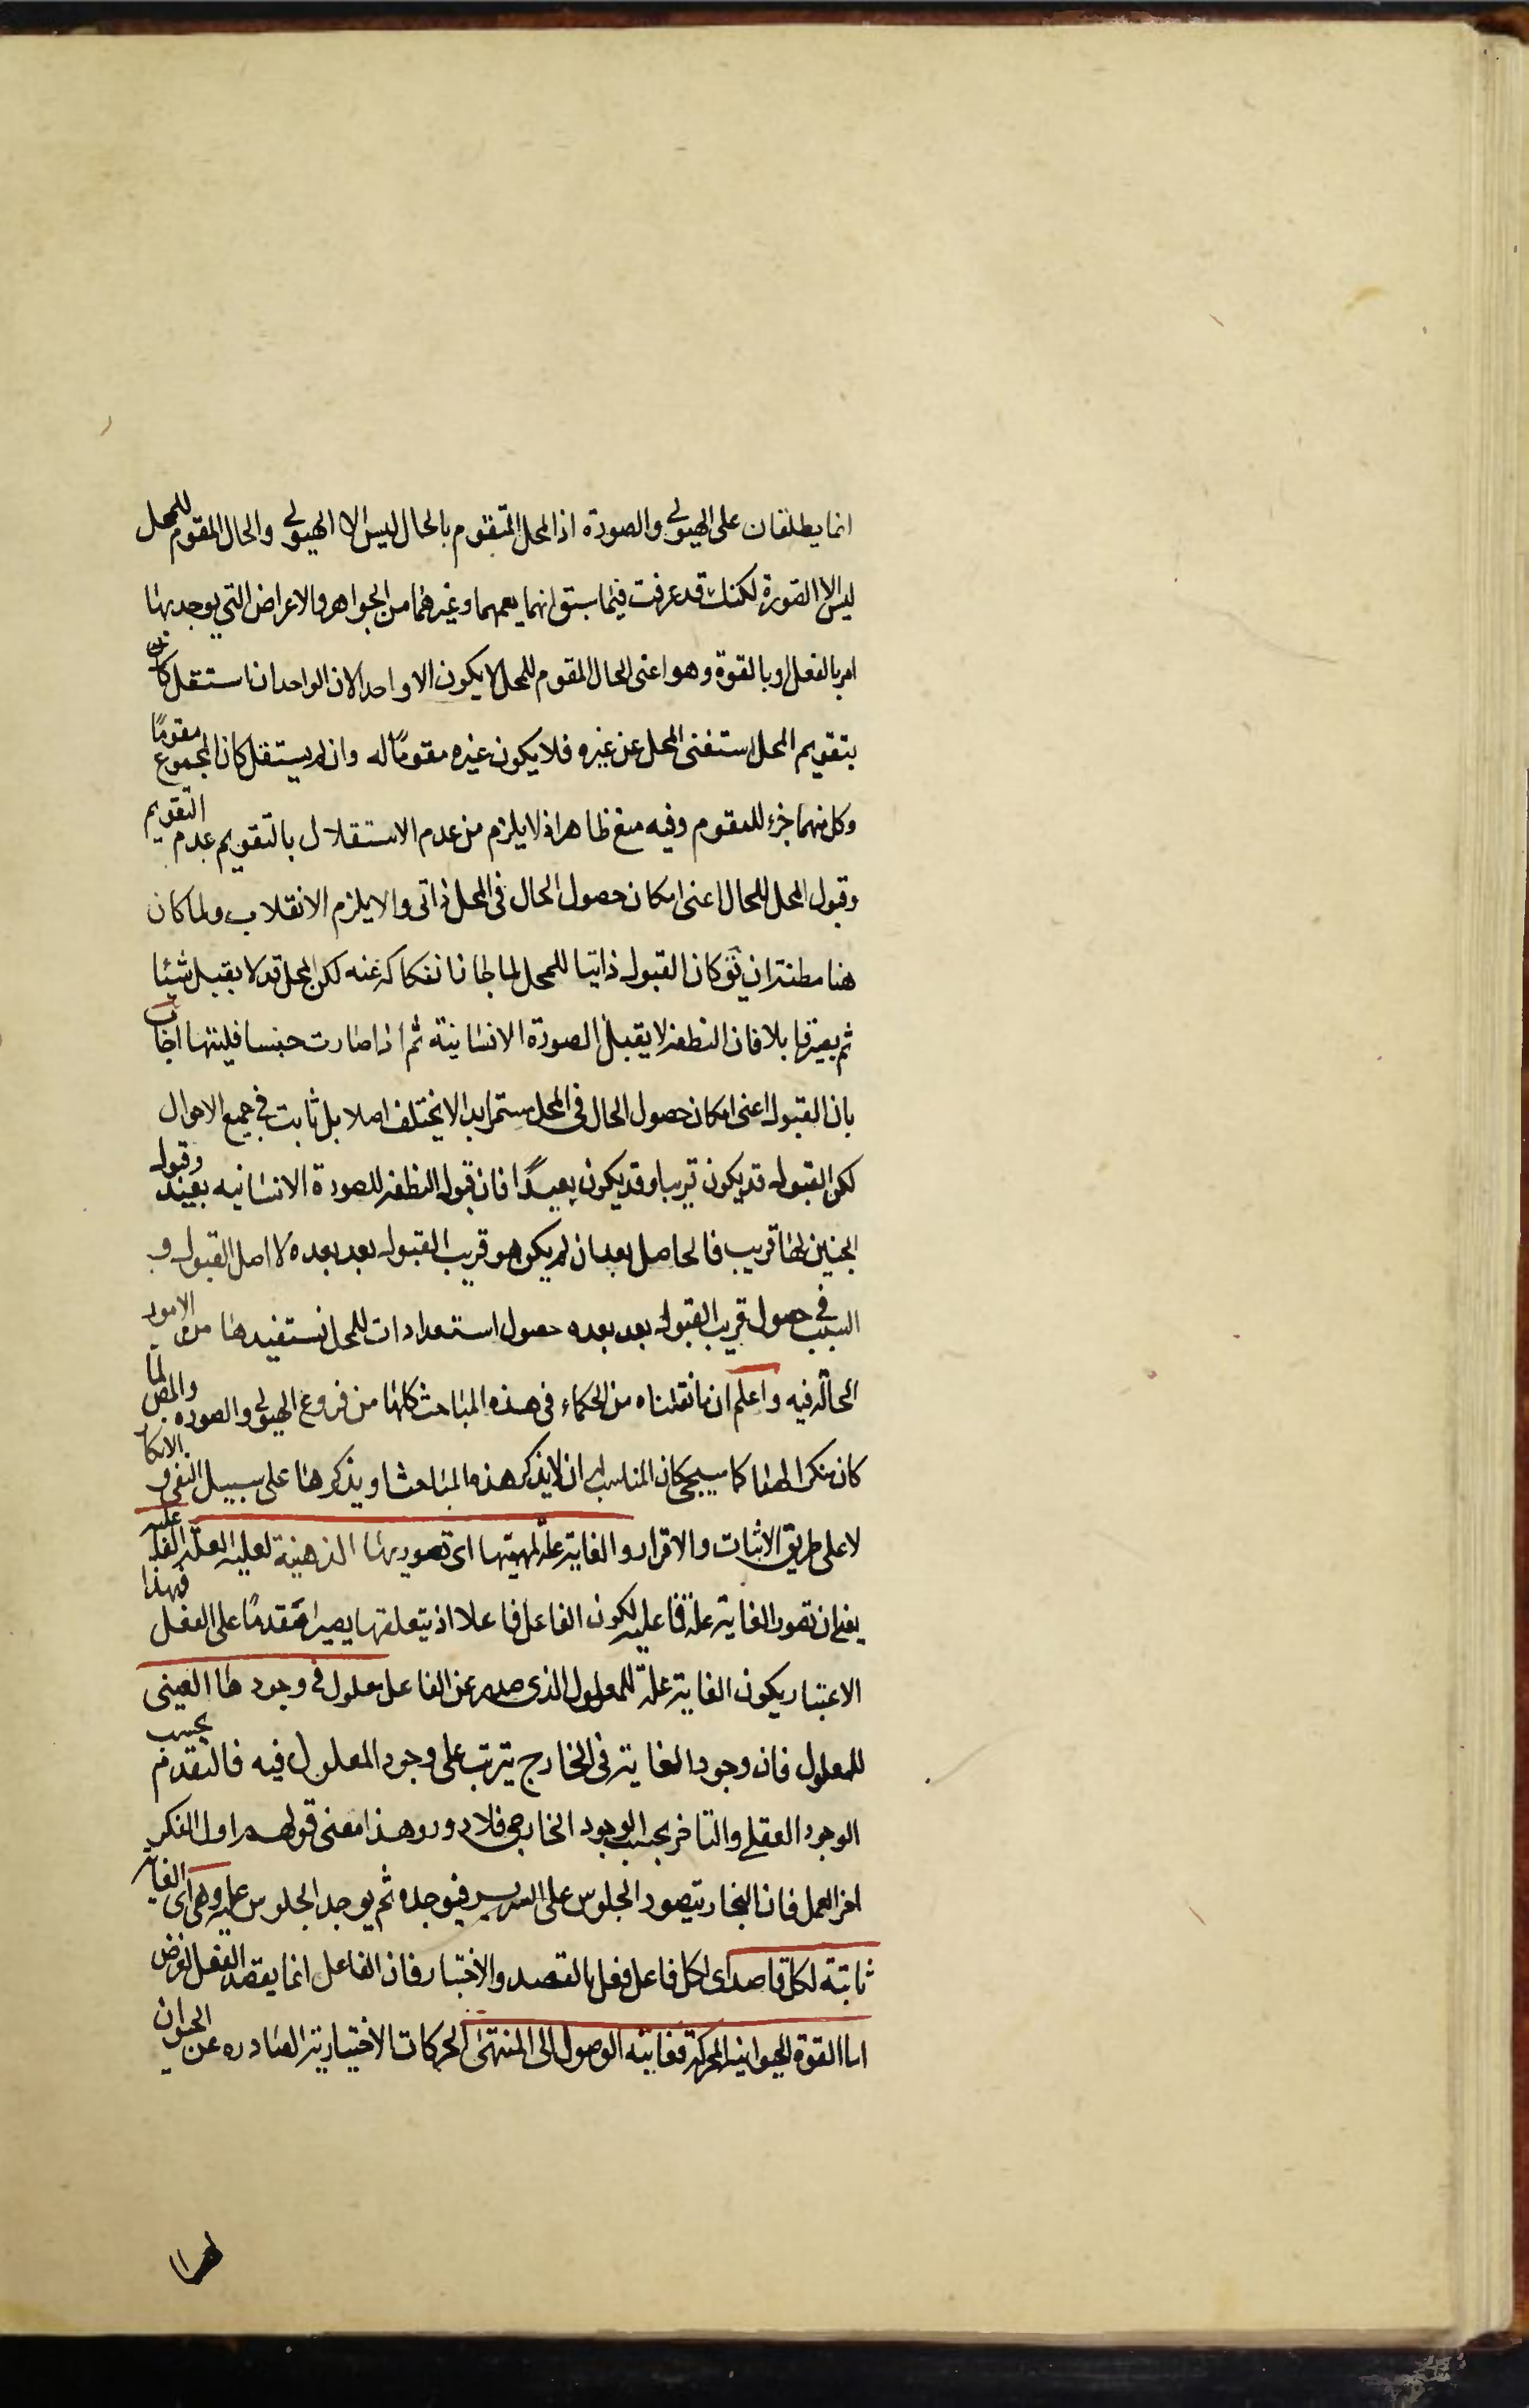 انما يطلقان على الهيولى والصورة اذ المحل المتقوم بالحال ليس الا الهيولى والحال المقوم للمحل
ليس الا الصورة لكنك قد عرفت فيما سبق انهما يعمهما وغيرهما من الجواهر والاعراض التي يوجد بها
امر بالفعل او بالقوة وهو اعنى الحال المقوم للمحل لا يكون الا واحدا لان الواحد ان استقل
بتقويم المحل استغنى المحل عن غيره فلا يكون غيره مقوما له وان لم يستقل كان المجموع مقومًا
وكل منهما جزء للمقوم وفيه منع ظاهر اذ لا يلزم من عدم الاستقلال بالتقويم عدم التقويم
وقبول المحل للحال اعنى امكان حصول الحال فى المحل ذاتى والا يلزم الانقلاب ولما كان
هنا مظنة ان يق لو كان القبول ذاتيا للمحل لما جاز انفكاكه عنه لكن المحل قد لا يقبل شيئا
ثم يصير قابلا فان النطفة لا يقبل الصورة الانسانية ثم اذا صارت جنينا قبلتها اجاب
بان القبول اعنى امكان حصول الحال فى المحل مستمر ابدا لا يختلف اصلا بل ثابت فى جميع الاحوال
لكن القبول قد يكون قريبا وقد يكون بعيدًا فان قبول النطفة للصورة الانسانيه بعيد وقبول
الجنين لها قريب فالحاصل بعد ان لم يكن هو قريب القبول بعد بعده لا اصل القبول و
السبب فى حصول قريب القبول بعد بعده حصول استعدادات للمحل تستفيدها من الامور
الحالة فيه واعلم ان ما نقلناه من الحكماء فى هذه المباحث كلها من فروع الهيولى والصوره والمص لما
كان منكرا لهما كما سيجئ كان المناسب له ان لا يذكر هذه المباحث او يذكرها على سبيل النفى و الانكار
لا على طريق الاثبات والاقرار والغاية علة بمهيتها اى بصورتها الذهنية لعلية العلة الفاعلية
يعنى ان تصور الغاية علة فاعلية لكون الفاعل فاعلا اذ بتعلقها يصير متقدمًا على الفعل فبهذا
الاعتبار يكون الغاية علة للمعلول الذى صدر عن الفاعل معلول فى وجودها العينى
للمعلول فان وجود الغاية فى الخارج يترتب على وجود المعلول فيه فالتقدم بحسب
الوجود العقلى والتاخر بحسب الوجود الخارجى فلا دور وهذا معنى قولهم اول الفكر
اخر العمل فان النجار يتصور الجلوس على السرير فيوجده ثم يوجد الجلوس عليه وهى اى الغاية
ثابتة لكل قاصد اى لكل فاعل فعل بالقصد والاختيار فان الفاعل انما يقصد الفعل لغرض
اما القوة الحيوانية المحركة فغايته الوصول الى المنتهى الحركات الاختيارية الصادره عن الحيوان